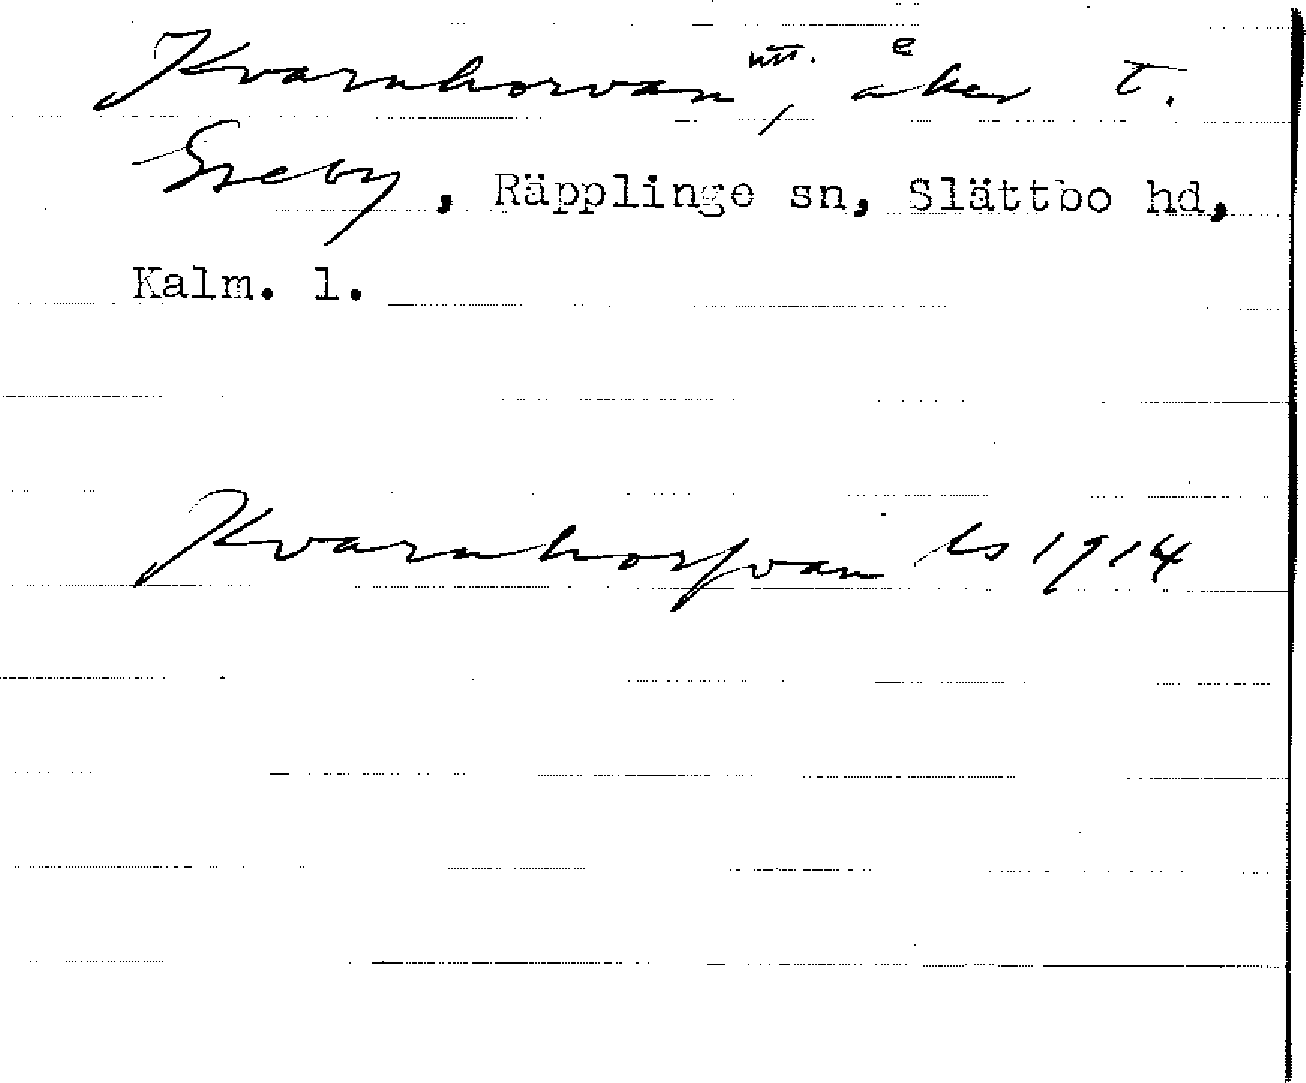 Kvarnhorvan, åker t.
Greby, Räpplinge sn, Slättbo hd,
Kalm. l.
Kvarnhorfvan ls 1914